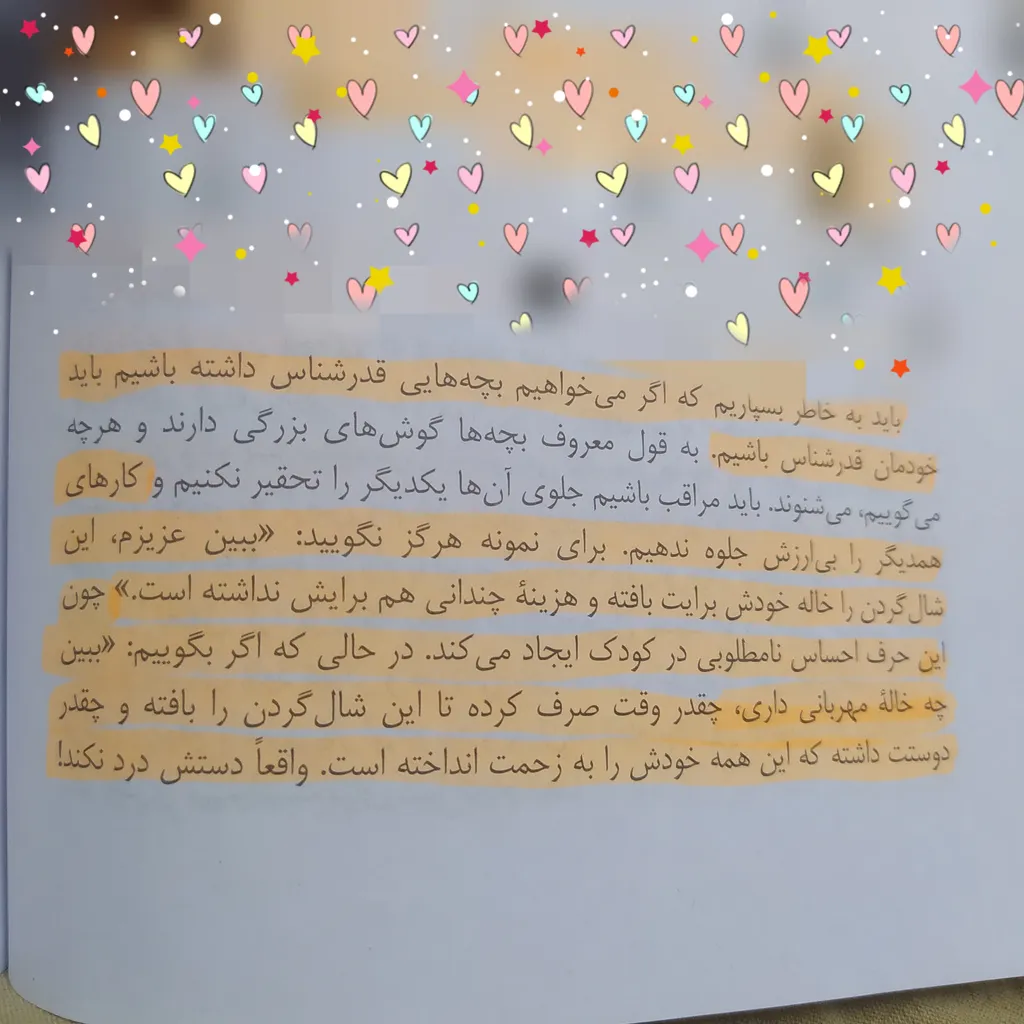 باید به خاطر بسپاریم که اگر می‌خواهیم بچه‌هایی قدرشناس داشته باشیم باید
خودمان قدرشناس باشیم. به قول معروف بچه‌ها گوش‌های بزرگی دارند و هرچه
می‌گوییم، می‌شنوند. باید مراقب باشیم جلوی آن‌ها یکدیگر را تحقیر نکنیم و کارهای
همدیگر را بی‌ارزش جلوه ندهیم. برای نمونه هرگز نگویید: «ببین عزیزم، این
شال‌گردن را خاله خودش برایت بافته و هزینهٔ چندانی هم برایش نداشته است.» چون
این حرف احساس نامطلوبی در کودک ایجاد می‌کند. در حالی که اگر بگوییم: «ببین
چه خالهٔ مهربانی داری، چقدر وقت صرف کرده تا این شال‌گردن را بافته و چقدر
دوستت داشته که این همه خودش را به زحمت انداخته است. واقعاً دستش درد نکند!